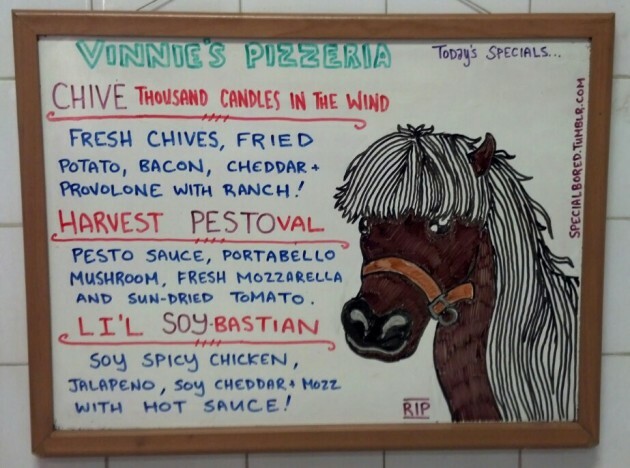 VINNIE'S PIZZERIA
TODAY'S SPECIALS...
CHIVE THOUSAND CANDLES IN THE WIND
FRESH CHIVES, FRIED
POTATO, BACON, CHEDDAR +
PROVOLONE WITH RANCH!
HARVEST PESTOVAL
PESTO SAUCE, PORTABELLO
MUSHROOM, FRESH MOZZARELLA
AND SUN-DRIED TOMATO.
LI'L SOY-BASTIAN
SOY SPICY CHICKEN,
JALAPENO, SOY CHEDDAR + MOZZ
WITH HOT SAUCE!
RIP
SPECIALBORED.TUMBLR.COM